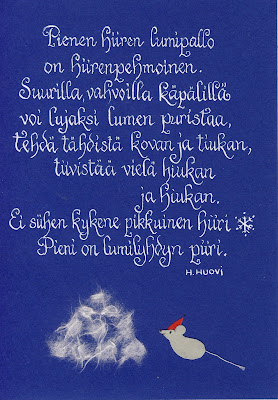 Pienen hiiren lumipallo
on hiirenpehmoinen.
Suurilla, vahvoilla käpälillä
voi lujaksi lumen puristaa,
tehdä tähdistä kovan ja tiukan,
tiivistää vielä hiukan
ja hiukan.
Ei siihen kykene pikkuinen hiiri
Pieni on lumilyhdyn piiri.
H. HUOVI